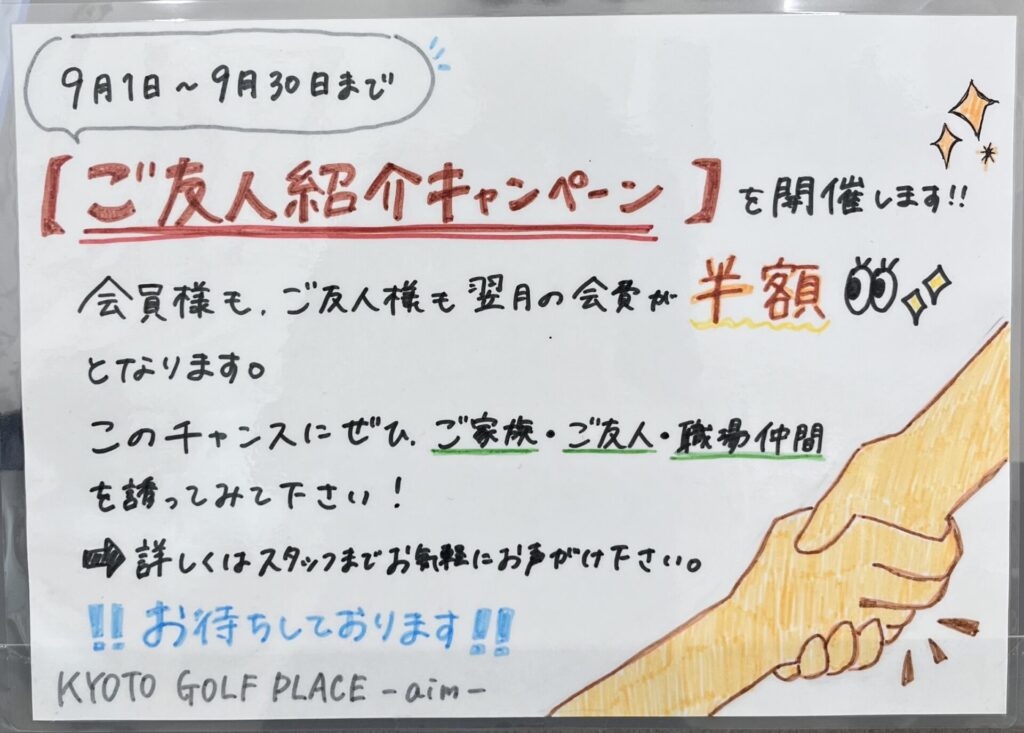 9月1日~9月30日まで
【ご友人紹介キャンペーン】を開催します!!
会員様も、ご友人様も翌月の会費が半額
となります。
このチャンスにぜひ、ご家族・ご友人・職場仲間
を誘ってみて下さい!
➡詳しくはスタッフまでお気軽にお声がけ下さい。
!!お待ちしております!!
KYOTO GOLF PLACE -aim-